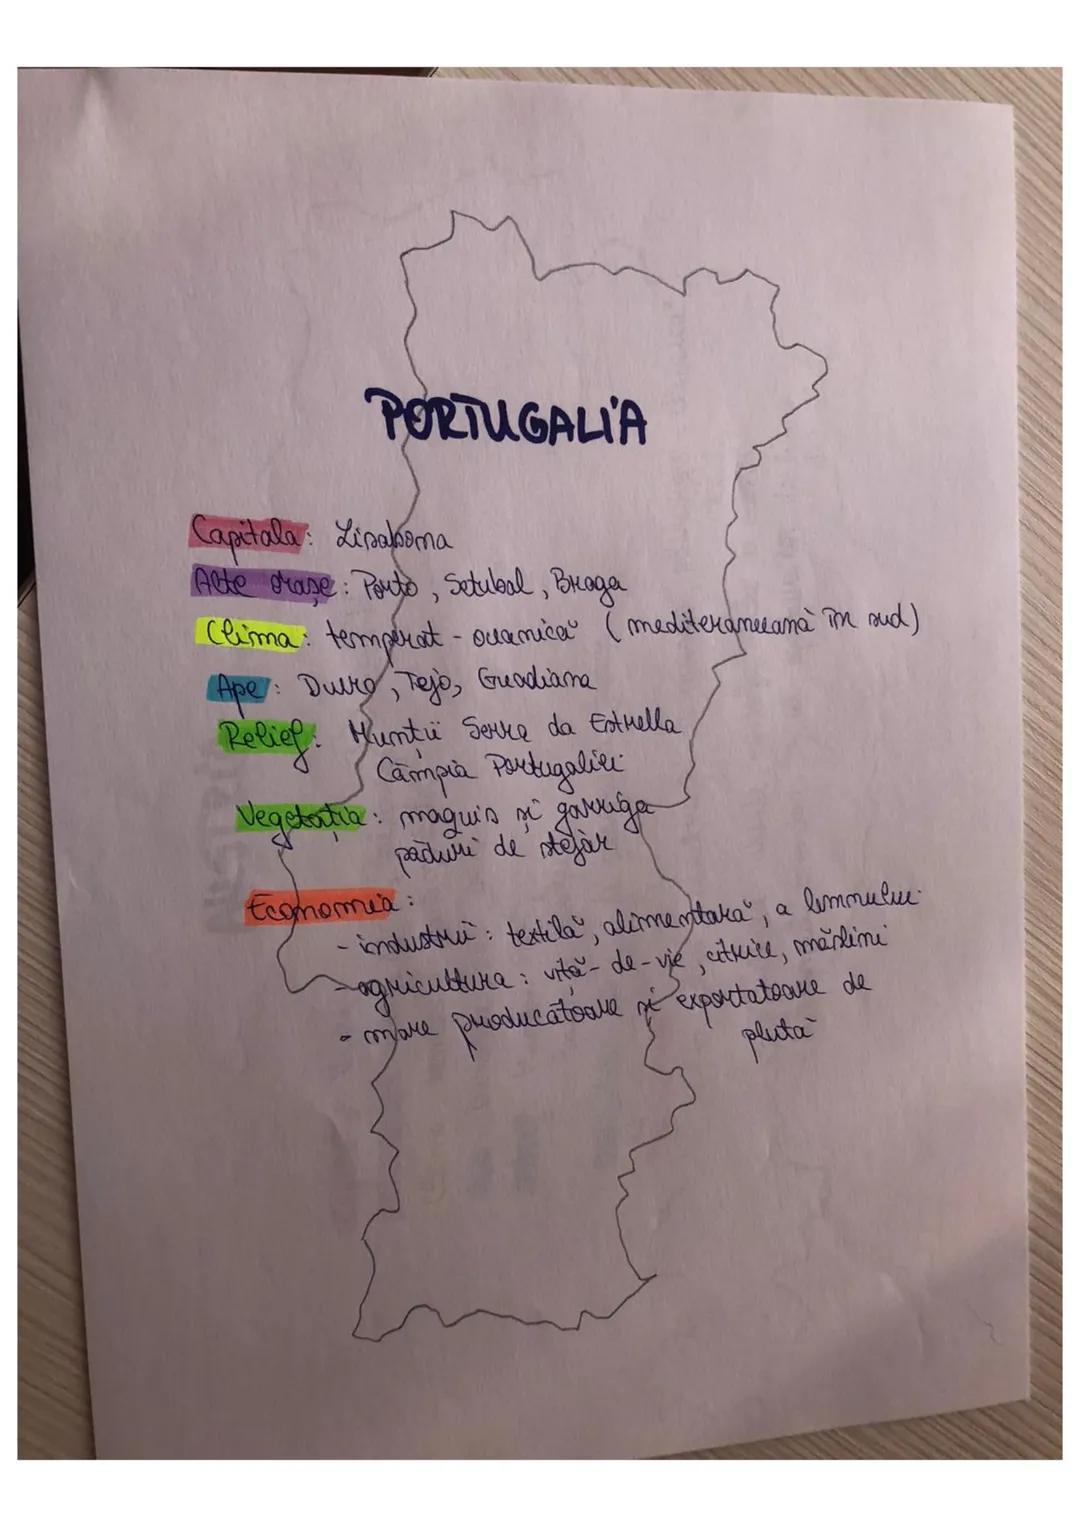 PORTUGALIA
Capitala: Lisabona
Alte orașe: Porto, Setubal, Braga
Clima: temperat - oceanică (mediteraneeană în sud)
Ape: Duero, Tejo, Guadiana
Relief: Munții Serra da Estrella
Câmpia Portugaliei
Vegetația: maquis și garriga
păduri de stejar
Economia:
- industrii: textilă, alimentară, a lemnului
- agricultura: viță-de-vie, citrice, măslini
- mare producătoare și exportatoare de
plută